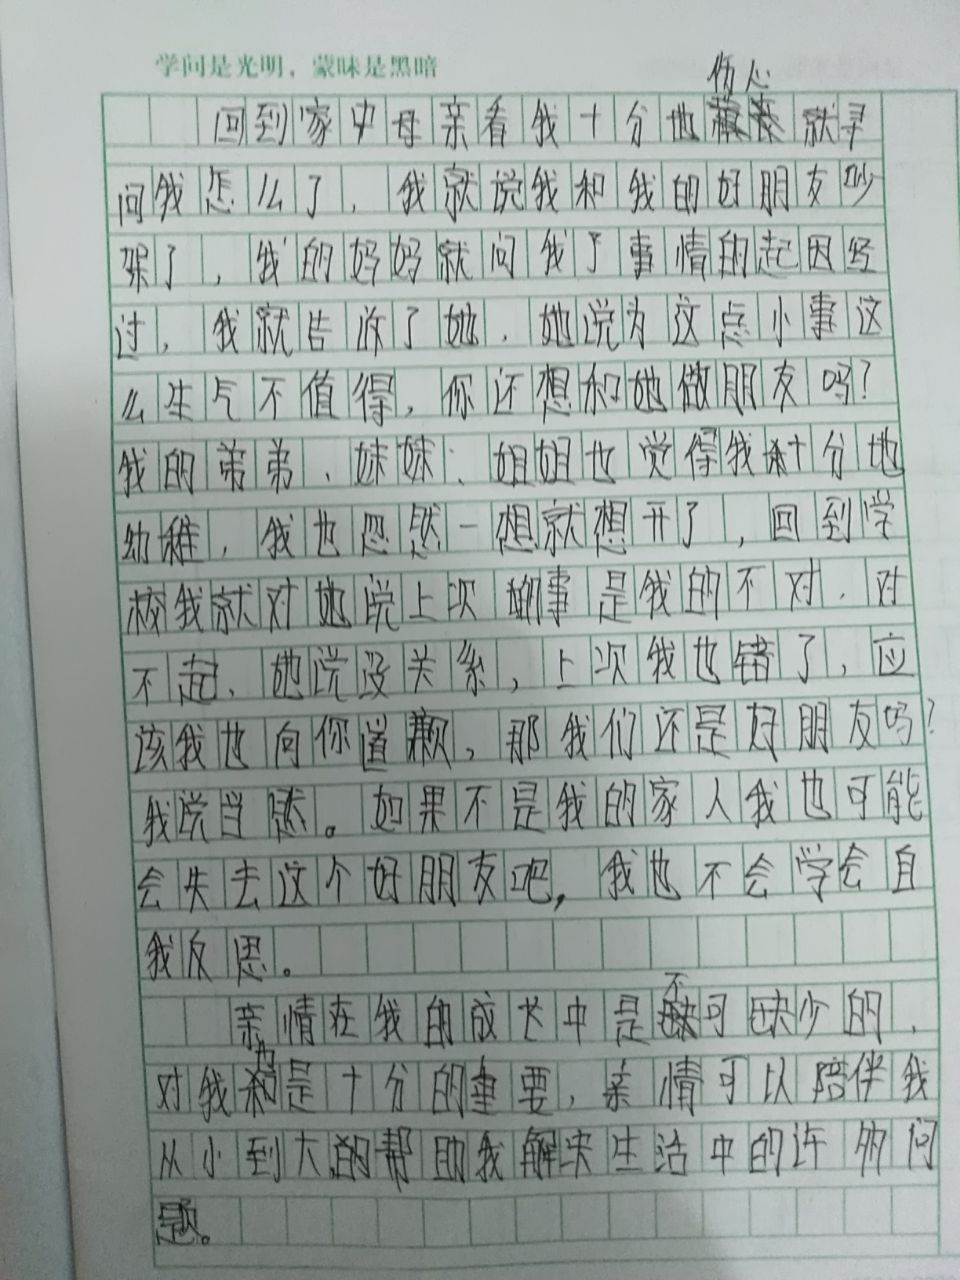 学问是光明，蒙昧是黑暗
伤心
回到家中母亲看我十分地就寻
问我怎么了，我就说我和我的好朋友吵
架了，我的妈妈就问我了事情的起因经
过，我就告诉了她，她说为这点小事这
么生气不值得，你还想和她做朋友吗？
我的弟弟、妹妹、姐姐也觉得我十分地
幼稚，我也忽然一想就想开了，回到学
校我就对她说上次那事是我的不对，对
不起，她说没关系，上次我也错了，应
该我也向你道歉，那我们还是好朋友吗？
我说当然。如果不是我的家人我也可能
会失去这个好朋友吧，我也不会学会自
我反思。
不
亲情在我的成长中是可缺少的，
也
对我是十分的重要，亲情可以陪伴我
从小到大的帮助我解决生活中的许多问
题。